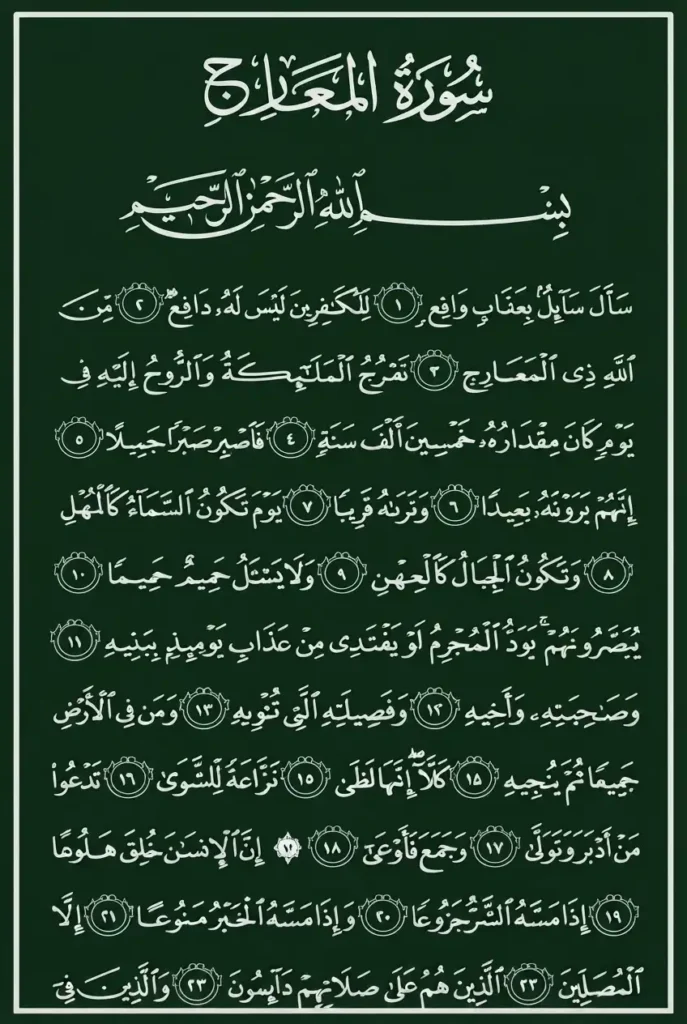 سُورَةُ المَعَارِجِ
بِسْمِ ٱللَّهِ ٱلرَّحْمَٰنِ ٱلرَّحِيمِ
سَأَلَ سَآئِلٌۢ بِعَفَابٍ وَاقِعٍ ١ لِّلْكَٰفِرِينَ لَيْسَ لَهُۥ دَافِعٌ ٢ مِّنَ
ٱللَّهِ ذِى ٱلْمَعَارِجِ ٣ تَفْرُجُ ٱلْمَلَٰٓئِكَةُ وَٱلرُّوحُ إِلَيْهِ فِى
يَوْمٍ كَانَ مِقْدَارُهُۥ خَمْسِينَ أَلْفَ سَنَةٍ ٤ فَٱصْبِرْ صَبْرًا جَمِيلًا ٥
إِنَّهُمْ بَرَوْنَهُۥ بَعِيدًا ٦ وَنَرَىٰهُ قَرِيبًا ٧ يَوْمَ تَكُونُ ٱلسَّمَآءُ كَٱلْمُهْلِ
٨ وَتَكُونُ ٱلْجِبَالُ كَٱلْعِهْنِ ٩ وَلَا يَسْـَٔلُ حَمِيمٌ حَمِيمًا ١٠
يُبَصَّرُونَهُمْ ۚ يَوَدُّ ٱلْمُجْرِمُ لَوْ يَفْتَدِى مِنْ عَذَابِ يَوْمِئِذٍ بِبَنِيهِ ١١
وَصَٰحِبَتِهِۦ وَأَخِيهِ ١٢ وَفَصِيلَتِهِ ٱلَّتِى تُنْوِيهِ ١٣ وَمَن فِى ٱلْأَرْضِ
جَمِيعًا ثُمَّ يُنْجِيهِ ١٥ كَلَّآ ۖ إِنَّهَا لَظَىٰ ١٥ نَزَّاعَةً لِّلشَّوَىٰ ١٦ تَدْعُوا۟
مَنْ أَدْبَرَ وَتَوَلَّىٰ ١٧ وَجَمَعَ فَأَوْعَىٰٓ ١٨ إِنَّ ٱلْإِنسَٰنَ خُلِقَ هَلُوعًا
١٩ إِذَا مَسَّهُ ٱلشَّرُّ جَزُوعًا ٢٠ وَإِذَا مَسَّهُ ٱلْخَيْرُ مَنُوعًا ٢١ إِلَّا
ٱلْمُصَلِّينَ ٢٣ ٱلَّذِينَ هُمْ عَلَىٰ صَلَاتِهِمْ دَآئِسُونَ ٢٣ وَٱلَّذِينَ فِىٓ